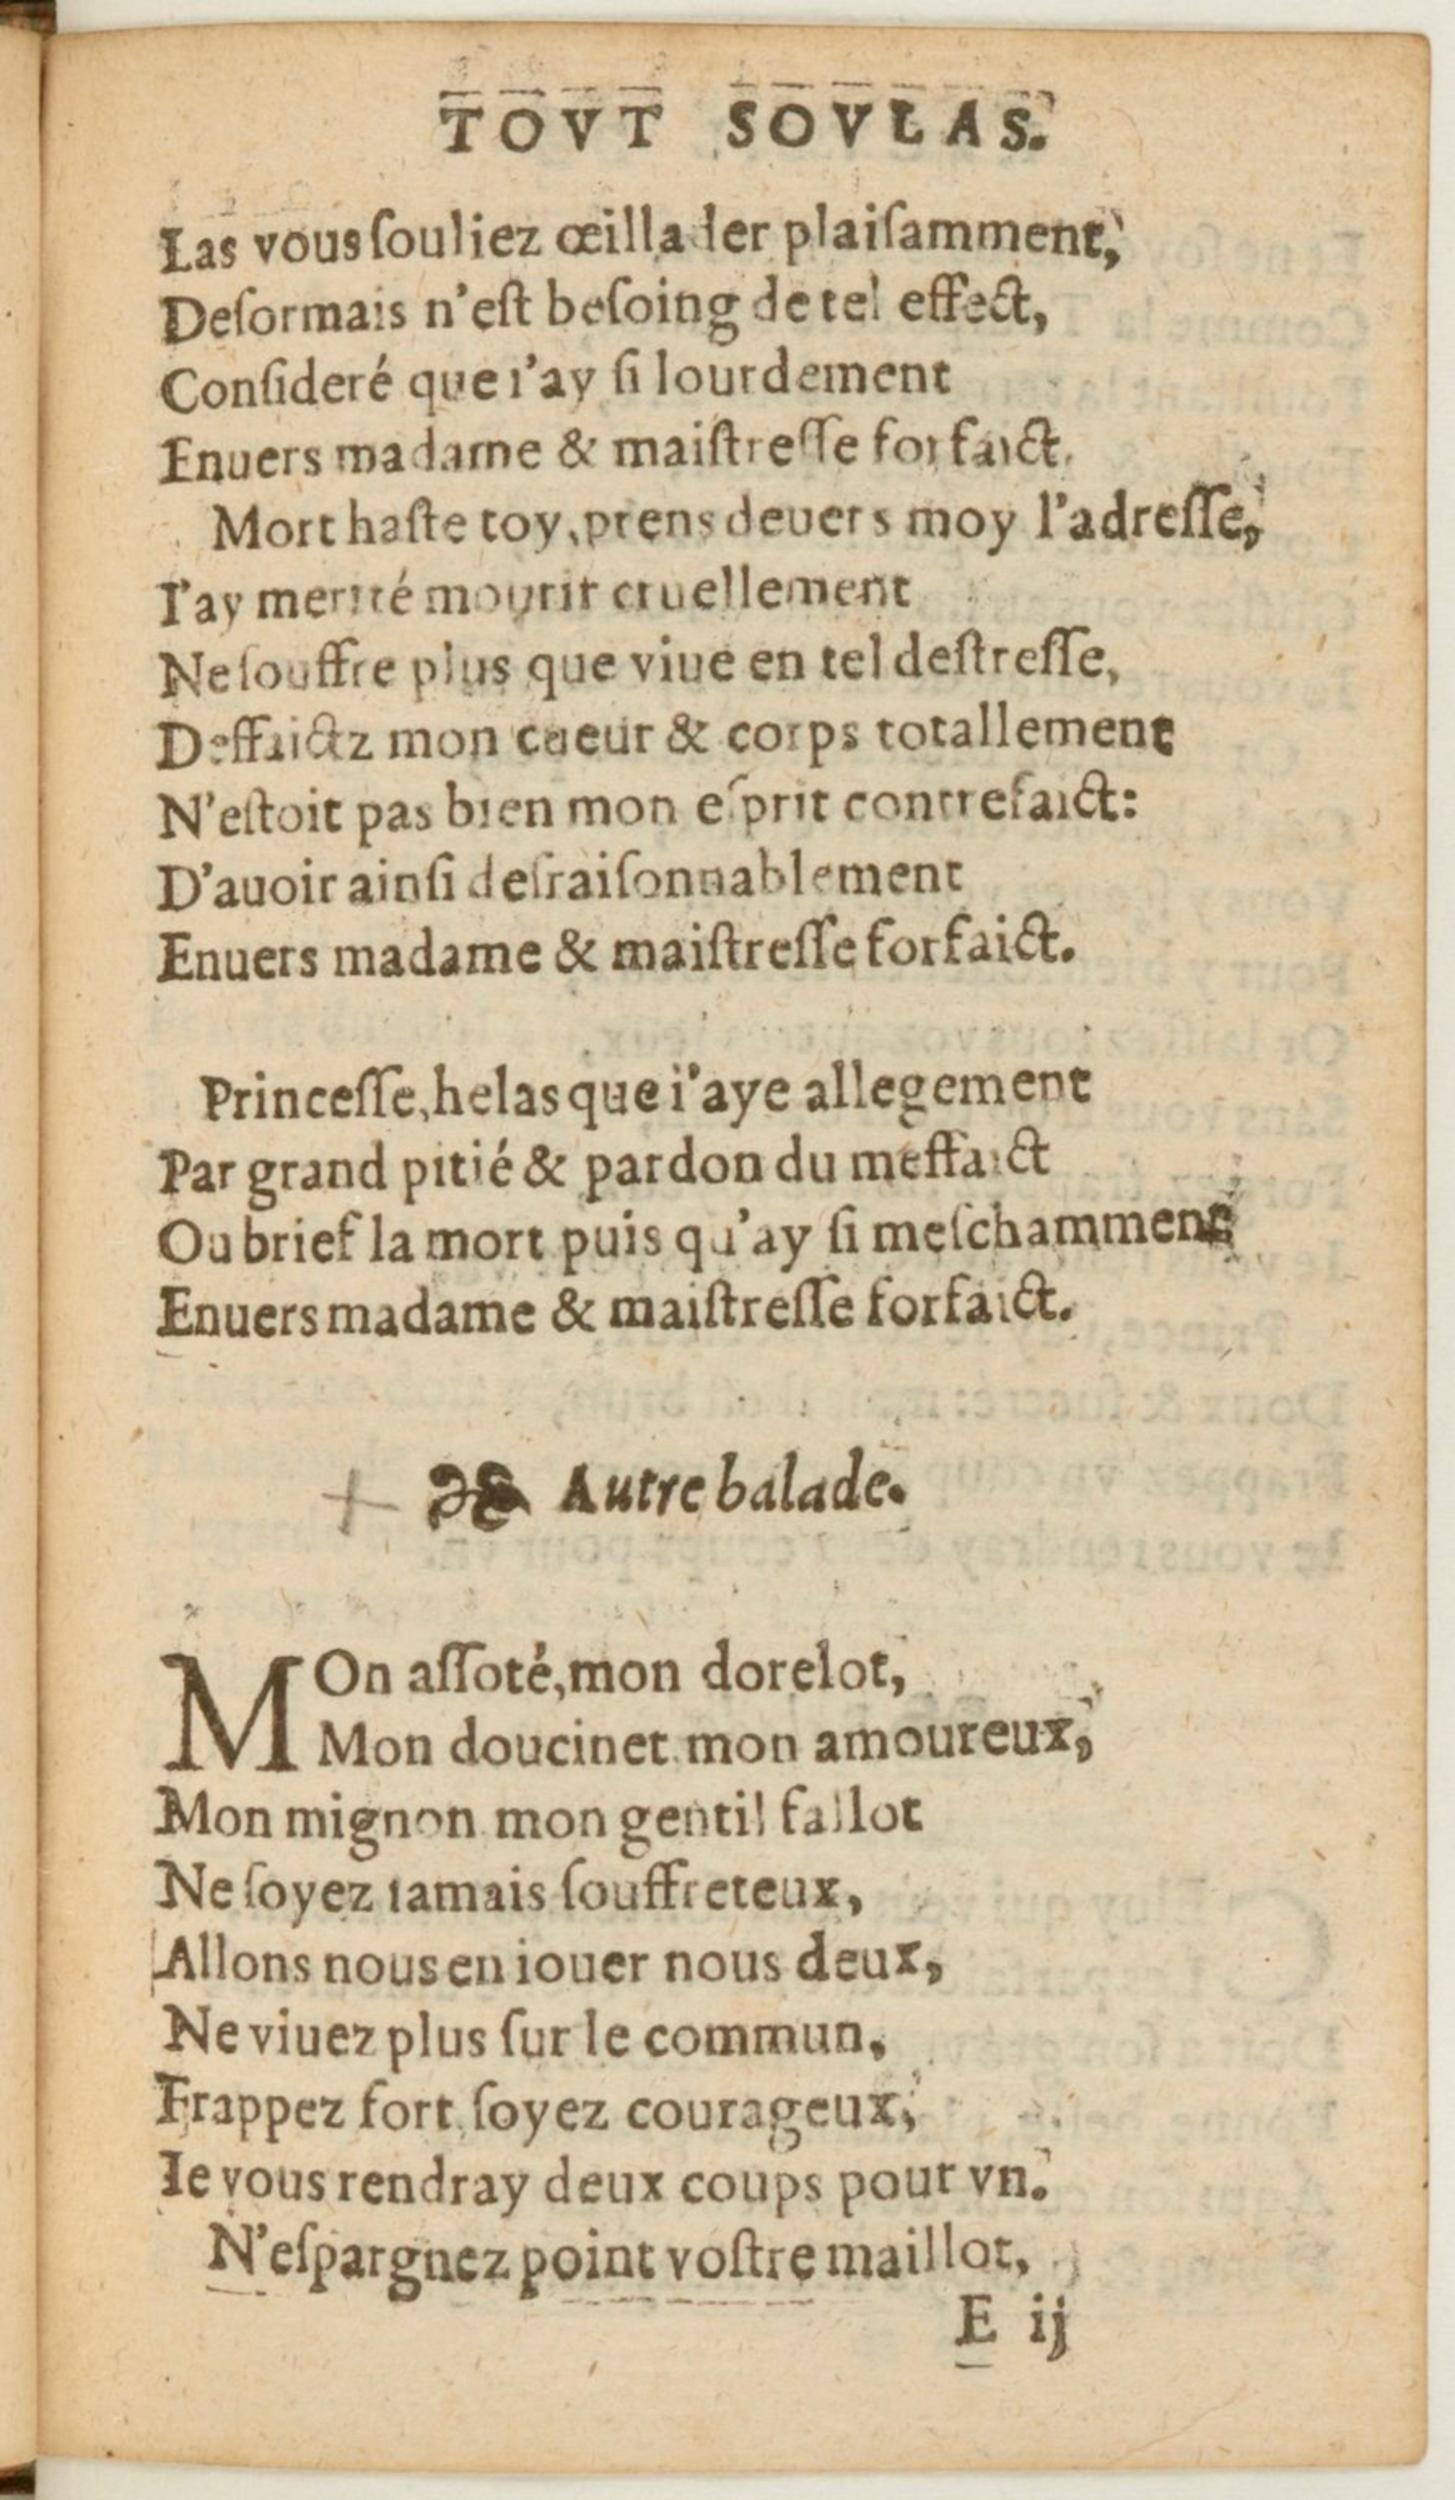 TOVT SOVLAS.
Las vous ſouliez œillader plaiſamment,
Deſormais n'eſt beſoing de tel effect,
Conſideré que i'ay ſi lourdement
Enuers madame & maiſtreſſe forfaict.
Mort haſte toy, prens deuers moy l'adreſſe,
I'ay merité mourir cruellement
Ne ſouffre plus que viue en tel deſtreſſe,
Deffaictz mon cueur & corps totallement
N'eſtoit pas bien mon eſprit contrefaict:
D'auoir ainſi deſraiſonnablement
Enuers madame & maiſtreſſe forfaict.
Princeſſe, helas que i'aye allegement
Par grand pitié & pardon du meffaict
Ou brief la mort puis qu'ay ſi meſchamment
Enuers madame & maiſtreſſe forfaict.
Autre balade.
MOn aſſoté, mon dorelot,
Mon doucinet mon amoureux,
Mon mignon mon gentil fallot
Ne ſoyez iamais ſouffreteux,
Allons nous en iouer nous deux,
Ne viuez plus ſur le commun,
Frappez fort, ſoyez courageux,
Ie vous rendray deux coups pour vn.
N'eſpargnez point voſtre maillot,
E ij